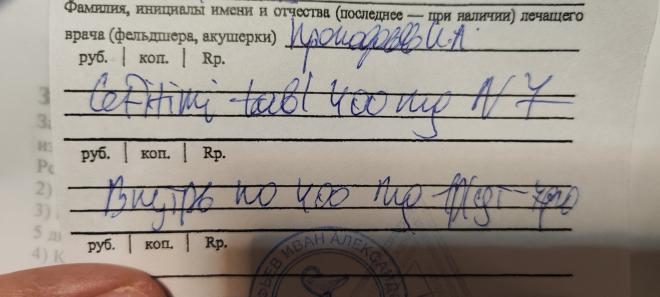 Фамилия, инициалы имени и отчества (последнее — при наличии) лечащего
врача (фельдшера, акушерки) Прокофьев И.А.
руб. | коп. | Rp.
Cefiximi tabl 400 mg N 7
руб. | коп. | Rp.
Внутрь по 400 mg
руб. | коп. | Rp.
ЬЕВ ИВАН АЛЕКСАНД
2)
3)
5 д
4) К